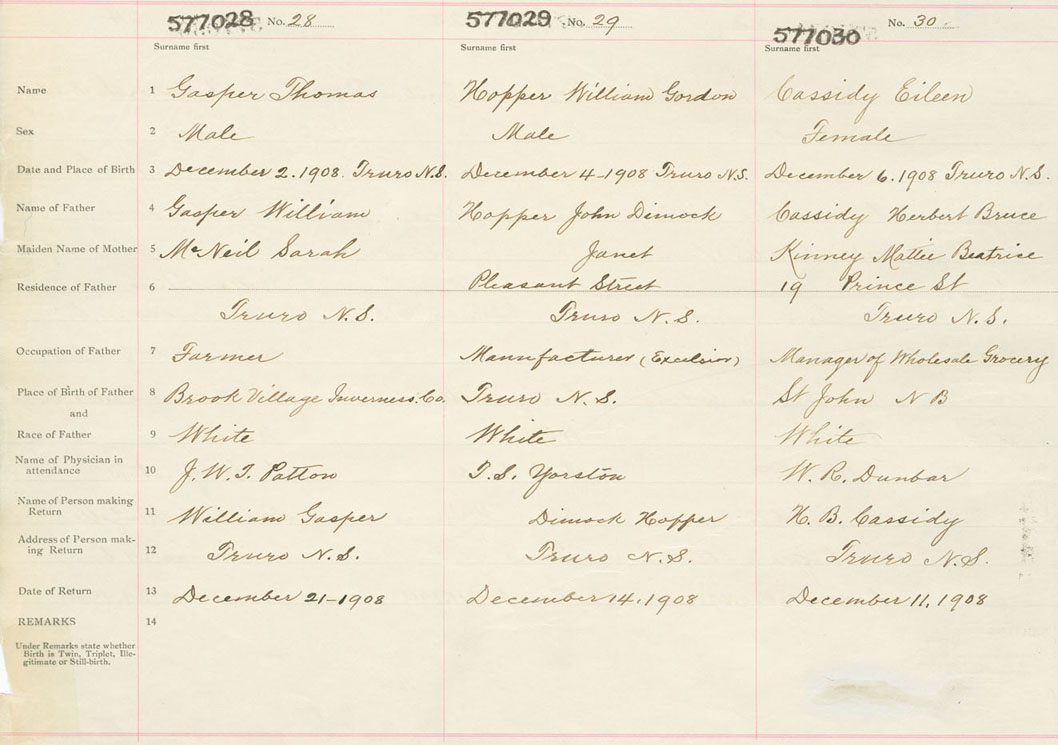 577028 No. 28 577029 No. 29 577030 No. 30
Surname first Surname first Surname first
Name 1 Gasper Thomas Hopper William Gordon Cassidy Eileen
Sex 2 Male Male Female
Date and Place of Birth 3 December 2. 1908. Truro N.S. December 4-1908 Truro N.S. December 6. 1908 Truro N.S.
Name of Father 4 Gasper William Hopper John Dimock Cassidy Herbert Bruce
Maiden Name of Mother 5 McNeil Sarah Janet Kinney Mattie Beatrice
Residence of Father 6 Pleasant Street 19 Prince St
Truro N.S. Truro N.S. Truro N.S.
Occupation of Father 7 Farmer Manufacturer (Excelsior) Manager of Wholesale Grocery
Place of Birth of Father 8 Brook Village Inverness. Co. Truro N.S. St John N B
and
Race of Father 9 White White White
Name of Physician in
attendance 10 J. W. T. Patton T. S. Yorston W. R. Dunbar
Name of Person making
Return 11 William Gasper Dimock Hopper H. B. Cassidy
Address of Person mak-
ing Return 12 Truro N.S. Truro N.S. Truro N.S.
Date of Return 13 December 21-1908 December 14, 1908 December 11, 1908
REMARKS 14
Under Remarks state whether
Birth is Twin, Triplet, Ille-
gitimate or Still-birth.